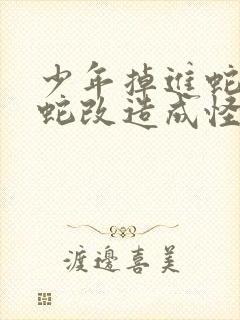 少年掉進蛇
蛇改造成怪
渡邊喜美